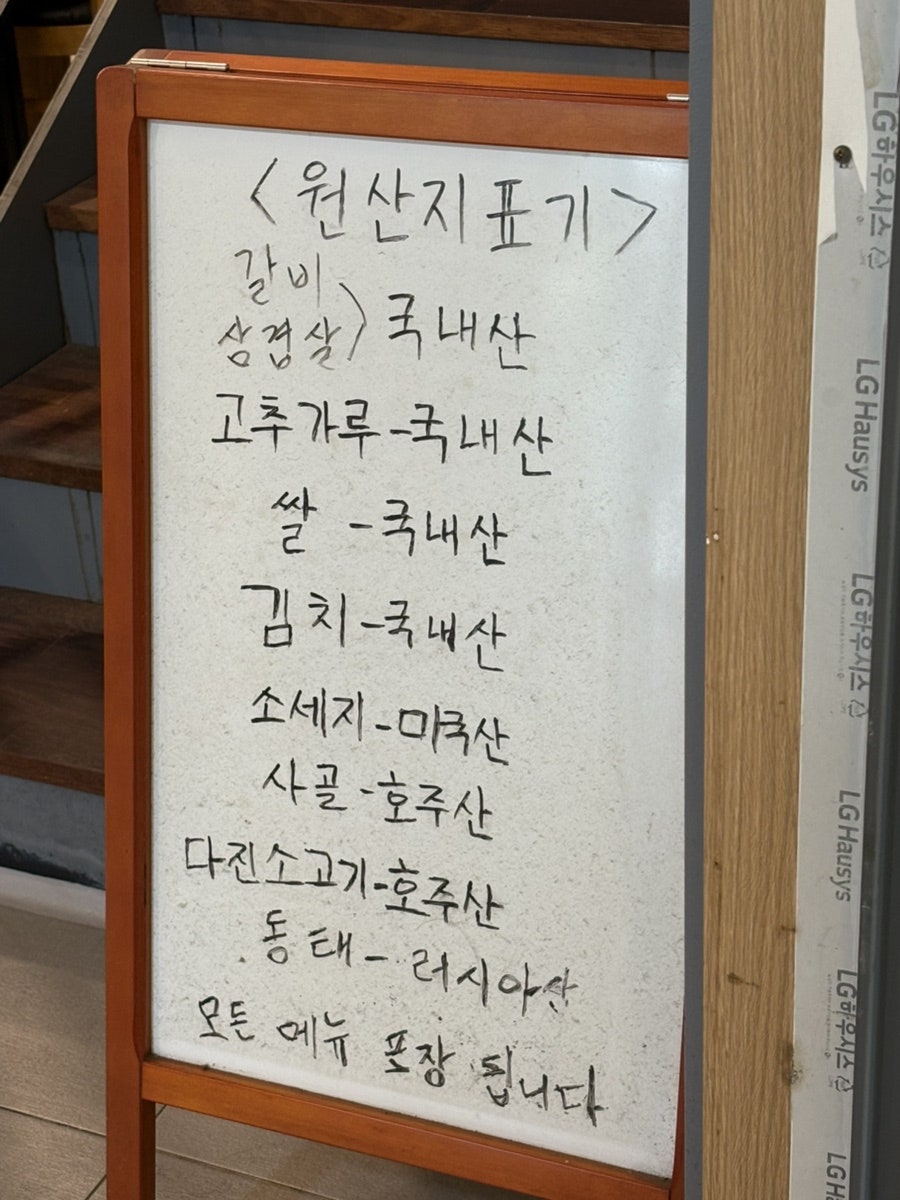 <원산지표기>
갈비
삼겹살 > 국내산
고추가루-국내산
쌀 -국내산
김치-국내산
소세지-미국산
사골-호주산
다진소고기-호주산
동태- 러시아산
모든 메뉴 포장 됩니다
LG하우시스
LG Hausys
LG하우시스
LG Hausys
LG하우시스
LG H